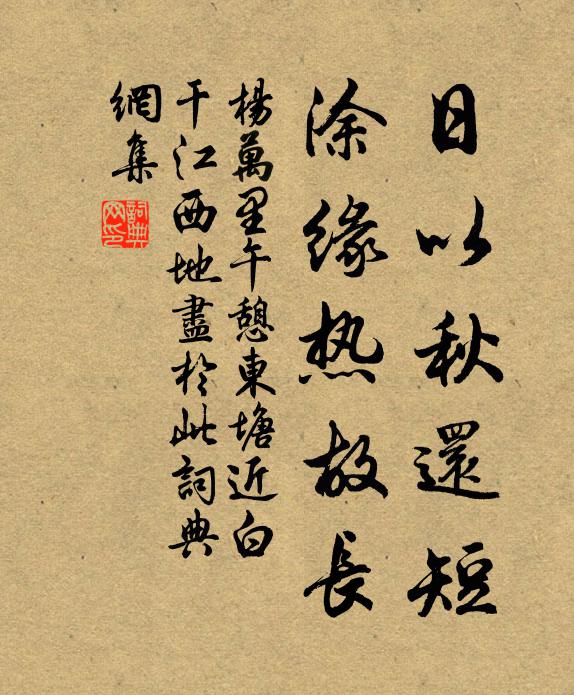 日以秋還短
涂緣热故長
楊萬里午憩東塘近白
干江西地盡於此詞典
網集
詞典
网印